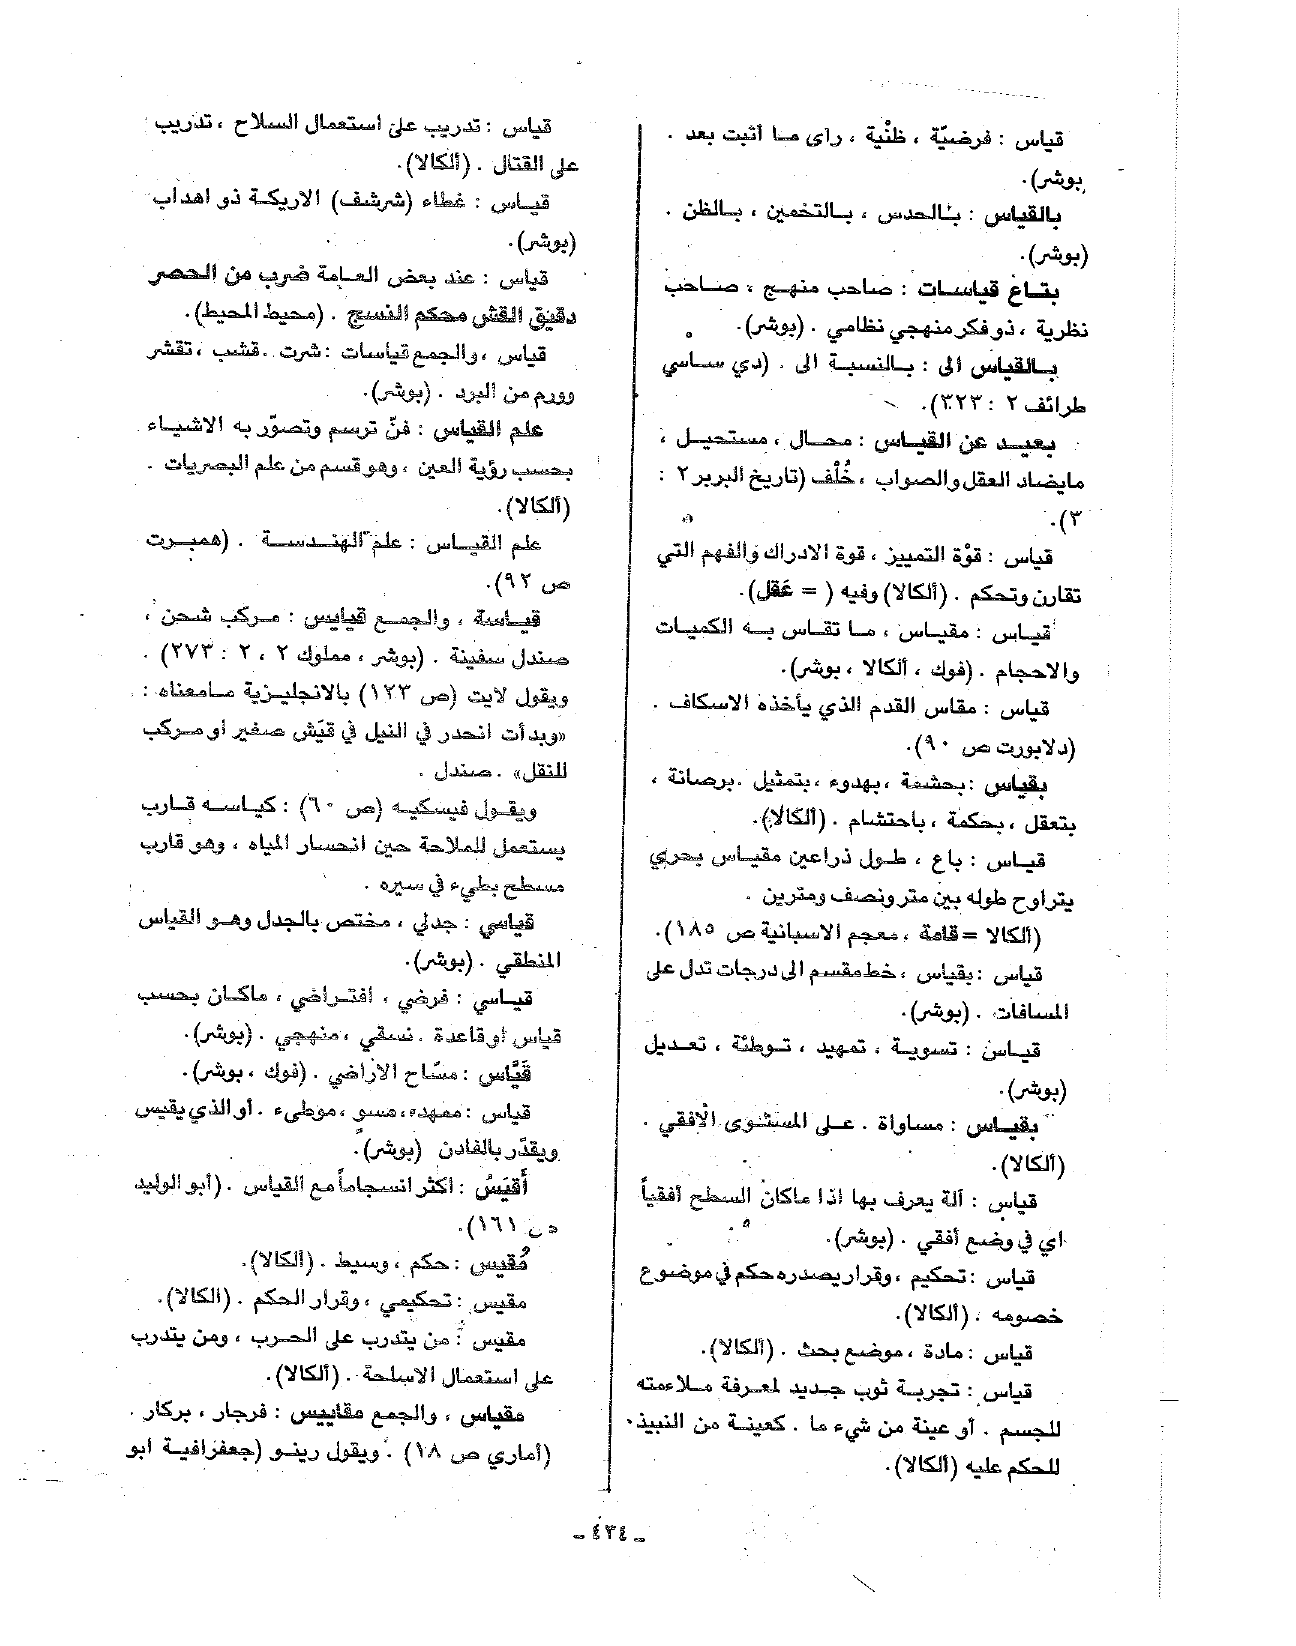 قياس : فرضيّة ، ظنْية ، راى مـا أثبت بعد .
بوشر).
بالقياس : بـالحدس ، بـالتخمين ، بـالظن .
(بوشر).
بتـاع قياسـات : صاحب منهج ، صـاحب
نظرية ، ذو فكر منهجي نظامي . (بوشر).
بـالقياس الى : بـالنسبة الى . (دي سـاسي
طرائف ٢ : ٣٢٣).
بعيـد عن القيـاس : محـال ، مستحيـل ،
مايضاد العقل والصواب ، خُلْف (تاريخ البربر ٢ :
٣).
قياس : قوْة التمييز ، قوة الادراك والفهم التي
تقارن وتحكم . (ألكالا) وفيه ( = عَقل).
قيـاس : مقيـاس ، مـا تقـاس بـه الكميات
والاحجام . (فوك ، ألكالا ، بوشر).
قياس : مقاس القدم الذي يأخذه الاسكاف .
(دلابورت ص ٩٠).
بقياس : بحشمة ، بهدوء ، بتمثيل . برصانة ،
بتعقل ، بحكمة ، باحتشام . (ألكالا).
قيـاس : باع ، طـول ذراعين مقيـاس بحري
يتراوح طوله بين متر ونصف ومترين .
(ألكالا = قامة ، معجم الاسبانية ص ١٨٥).
قياس : بقياس ، خط مقسم الى درجات تدل على
المسافات . (بوشر).
قيـاس : تسويـة ، تمهيد ، تـوطئة ، تعـديل
(بوشر).
بقيـاس : مساواة . عـلى المستوى الأفقي .
(ألكالا).
قياس : آلة يعرف بها اذا ماكان السطح أفقياً
اي في وضع أفقي . (بوشر).
قياس : تحكيم ، وقرار يصدره حكم في موضوع
خصومه . (ألكالا).
قياس : مادة ، موضع بحث . (ألكالا).
قياس : تجربـة ثوب جـديد لمعرفة مـلاءمته
للجسم . أو عينة من شيء ما . كعينـة من النبيذ
للحكم عليه (ألكالا).
قياس : تدريب على استعمال السلاح ، تدريب
على القتال . (ألكالا).
قيـاس : غطاء (شرشف) الاريكـة ذو اهداب
(بوشر).
قياس : عند بعض العـامة ضرب من الحصر
دقيق القش محكم النسج . (محيط المحيط).
قياس ، والجمع قياسات : شرت . قشب ، تقشر
وورم من البرد . (بوشر).
علم القياس : فنّ ترسم وتصوّر به الاشياء
بحسب رؤية العين ، وهو قسم من علم البصريات .
(ألكالا).
علم القيـاس : علم الهنـدسـة . (همبـرت
ص ٩٢).
قيـاسة ، والجمـع قيايس : مـركب شحن ،
صندل سفينة . (بوشر ، مملوك ٢ ، ٢ : ٢٧٣) .
ويقول لايت (ص ١٢٣) بالانجليزية مـامعناه :
«وبدأت انحدر في النيل في قيّش صغير أو مـركب
للنقل» . صندل .
ويقـول فيسكيـه (ص ٦٠) : كيـاسـه قـارب
يستعمل للملاحة حين انحسار المياه ، وهو قارب
مسطح بطيء في سيره .
قياسي : جدلي ، مختص بالجدل وهـو القياس
المنطقي . (بوشر).
قيـاسي : فرضي ، افتـراضي ، ماكـان بحسب
قياس أو قاعدة . نسقي ، منهجي . (بوشر).
قَيَّاس : مسّاح الاراضي . (فوك ، بوشر).
قياس : ممهدء، مسو ، موطىء . أو الذي يقيس
ويقدّر بالفادن (بوشر).
أَقيَسُ : اكثر انسجاماً مع القياس . (أبو الوليد
ص ١٦١).
مُقيس : حكم ، وسيط . (ألكالا).
مقيس : تحكيمي ، وقرار الحكم . (الكالا).
مقيس : من يتدرب على الحـرب ، ومن يتدرب
على استعمال الاسلحة . (ألكالا).
مقياس ، والجمع مقاييس : فرجار ، بركار .
(أماري ص ١٨) . ويقول رينـو (جعفرافيـة ابو
ـ ٤٣٤ ـ